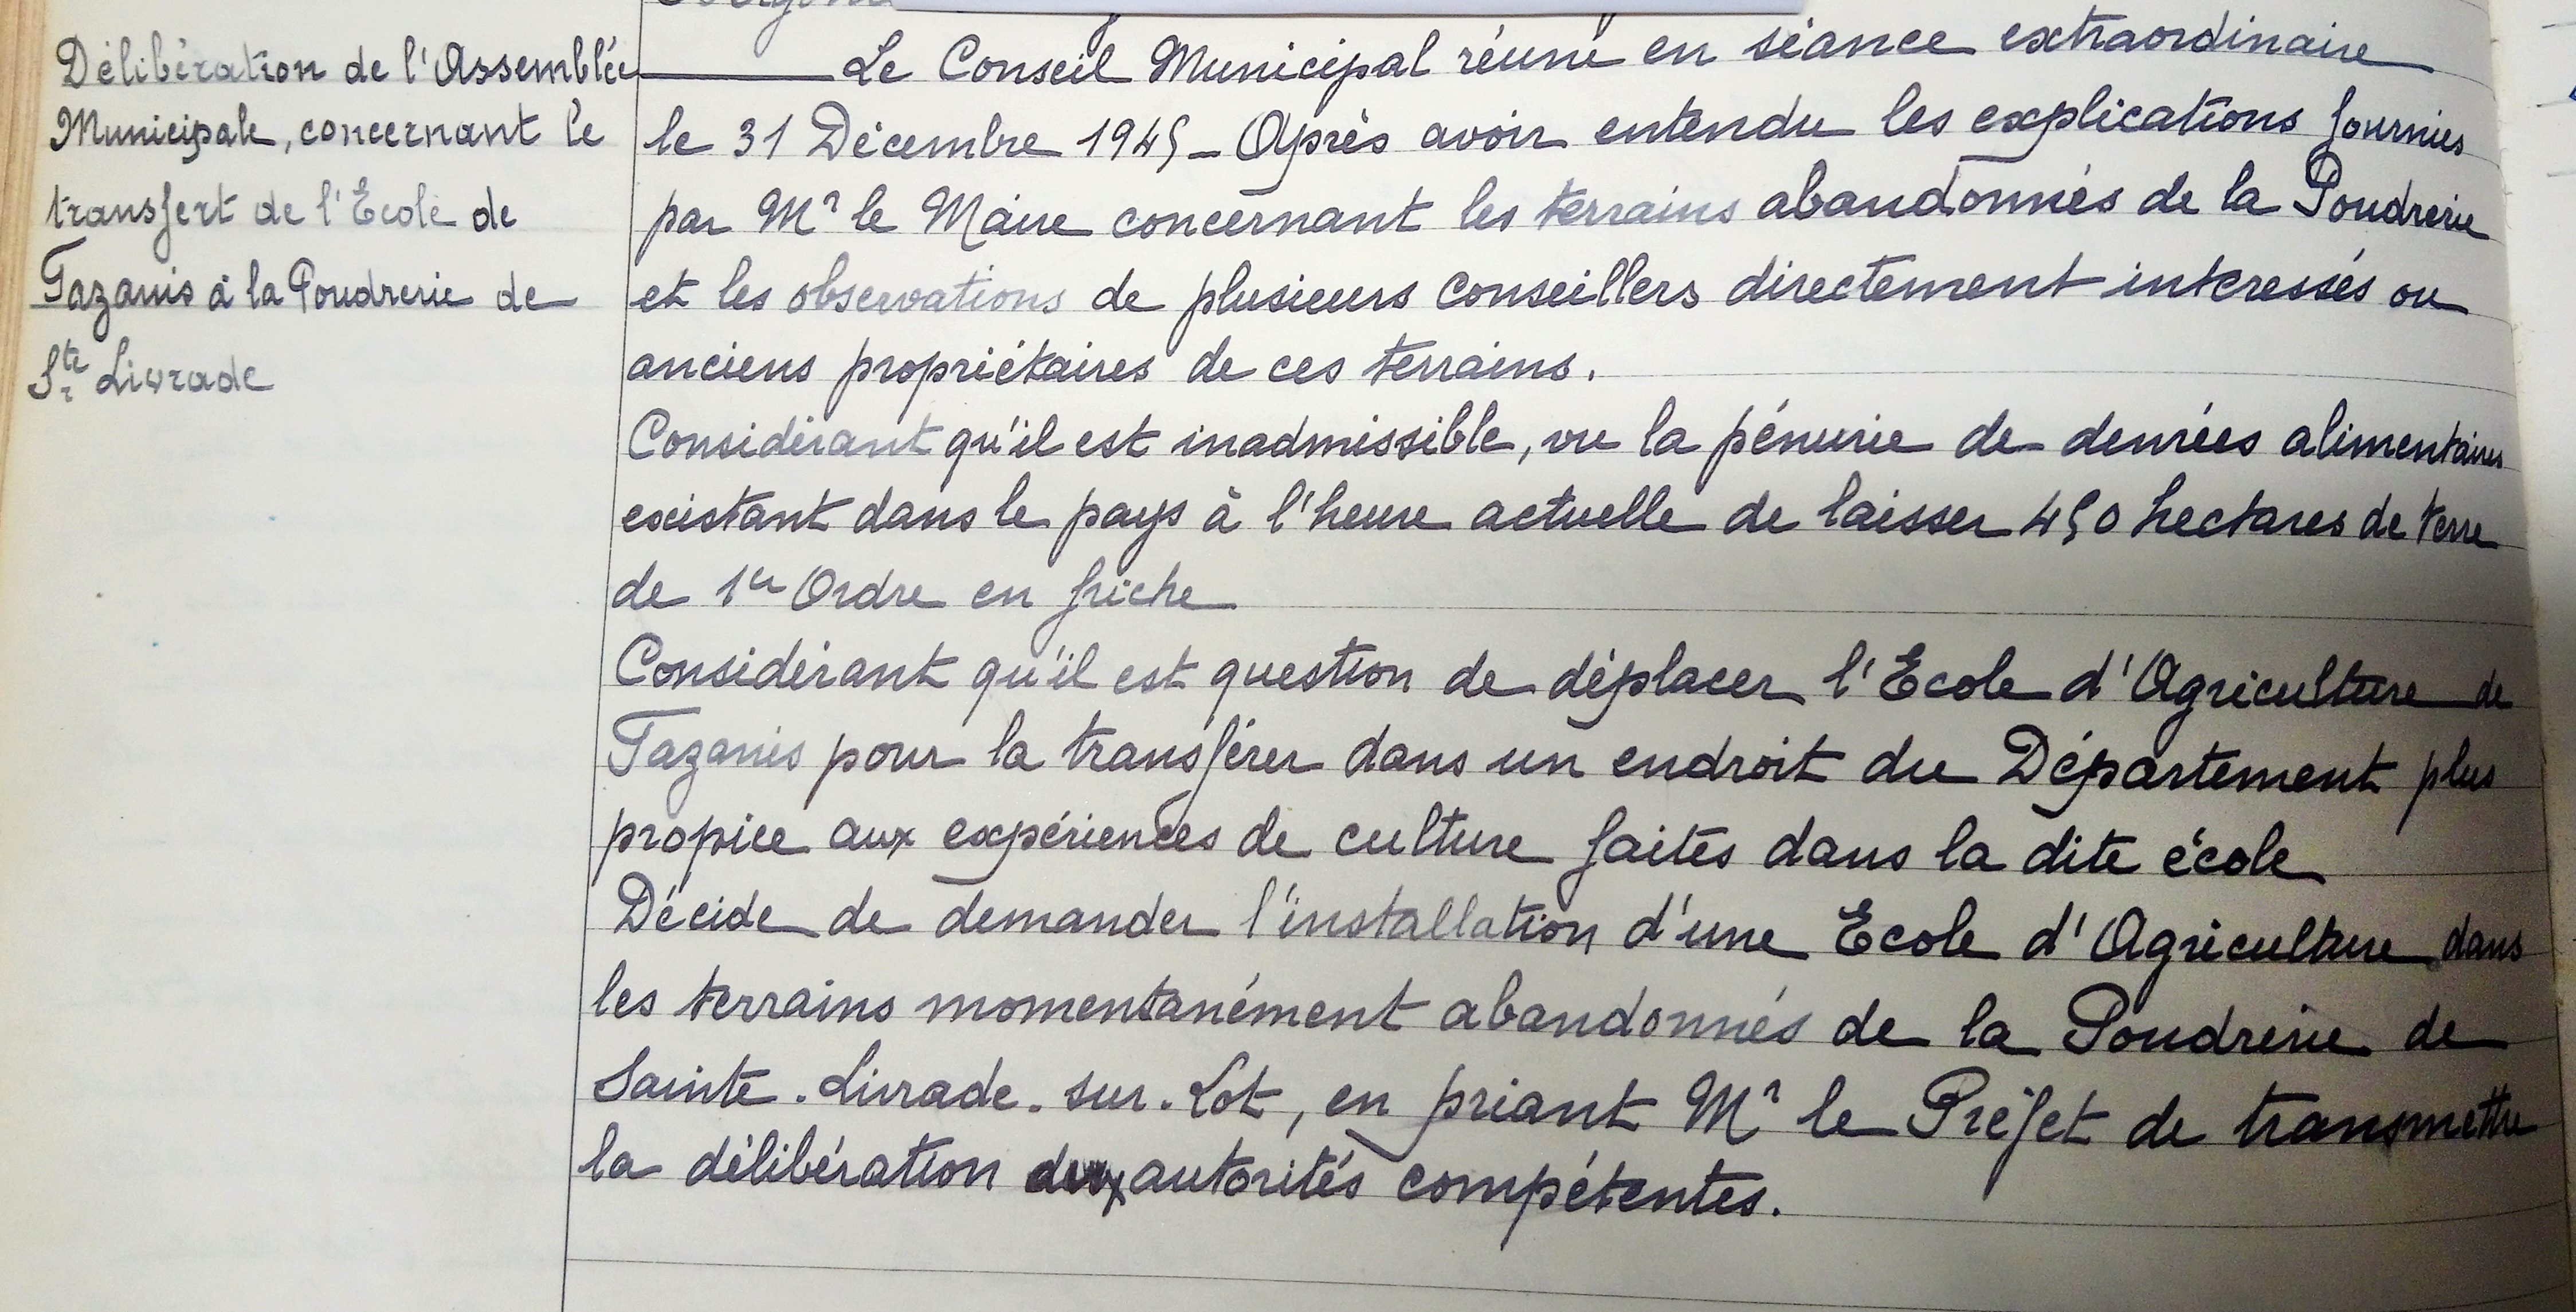 Délibération de l'Assemblée
Municipale, concernant le
transfert de l'Ecole de
Tazanis à la Poudrerie de
Ste Livrade
Le Conseil Municipal réuni en séance extraordinaire
le 31 Décembre 1945 _ Après avoir entendu les explications fournies
par Mr le Maire concernant les terrains abandonnés de la Poudrerie
et les observations de plusieurs conseillers directement interessés ou
anciens propriétaires de ces terrains.
Considérant qu'il est inadmissible, vu la pénurie de denrées alimentaires
existant dans le pays à l'heure actuelle de laisser 450 hectares de terre
de 1er Ordre en friche
Considérant qu'il est question de déplacer l'Ecole d'Agriculture de
Tazanis pour la transférer dans un endroit du Département plus
propice aux expériences de culture faites dans la dite école
Décide de demander l'installation d'une Ecole d'Agriculture dans
les terrains momentanément abandonnés de la Poudrerie de
Sainte. Livrade. sur. Lot, en priant Mr le Préfet de transmettre
la délibération aux autorités compétentes.